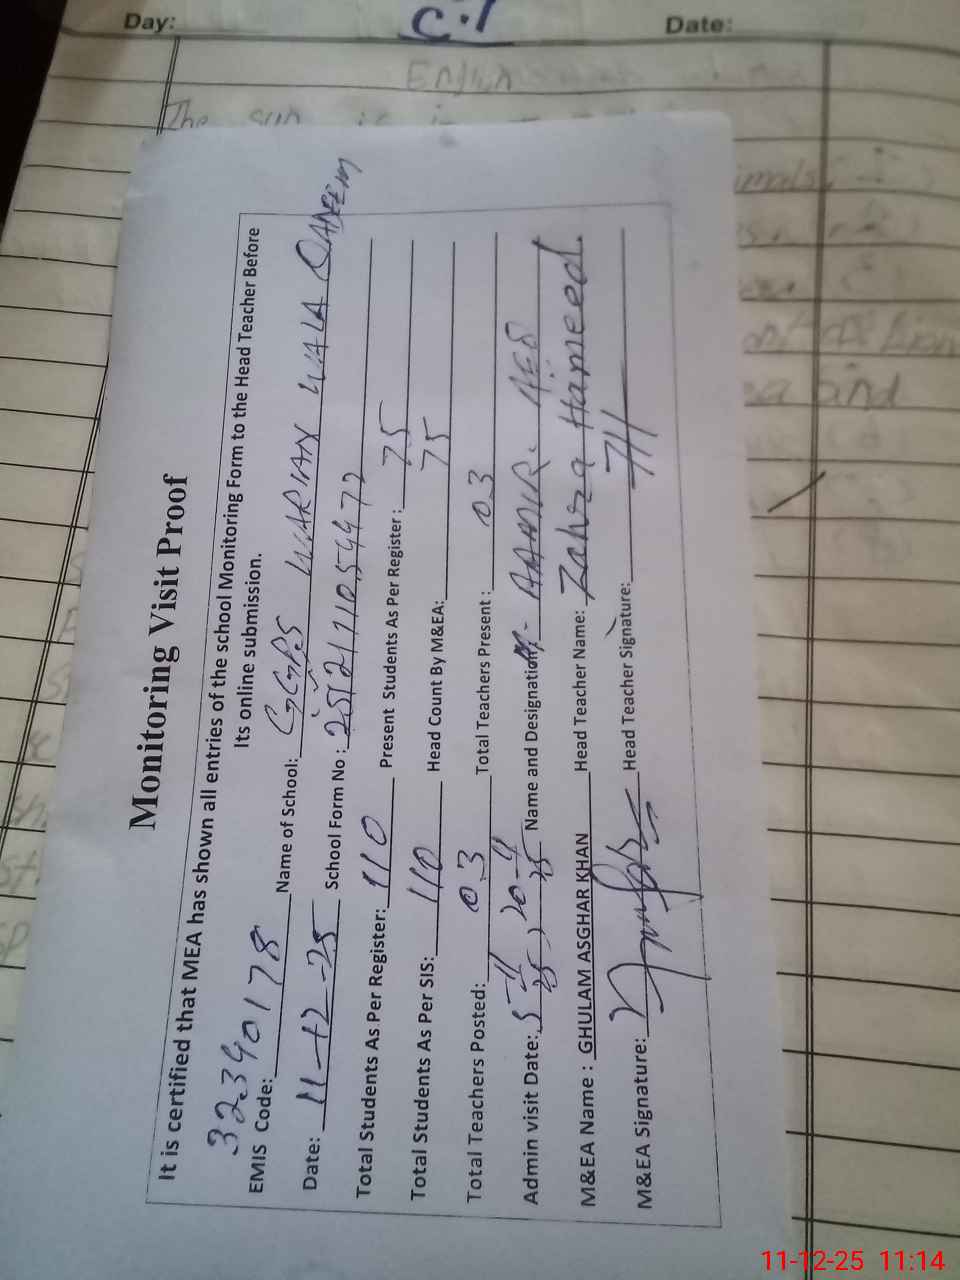 Day:
C.1
Date:
English
The sun is in
Monitoring Visit Proof
It is certified that MEA has shown all entries of the school Monitoring Form to the Head Teacher Before
Its online submission.
EMIS Code: 32340178 Name of School: GGPS WARIAN WALA QADEEM
Date: 11-12-25 School Form No :
Total Students As Per Register: 110 Present Students As Per Register: 75
Total Students As Per SIS: 110 Head Count By M&EA: 75
Total Teachers Posted: 03 Total Teachers Present: 03
Admin visit Date: 5-11-25, 20-4-25 Name and Designation: M. AAMIR.
M&EA Name : GHULAM ASGHAR KHAN Head Teacher Name: Zahra Hameed.
M&EA Signature: Head Teacher Signature:
and
11-12-25 11:14